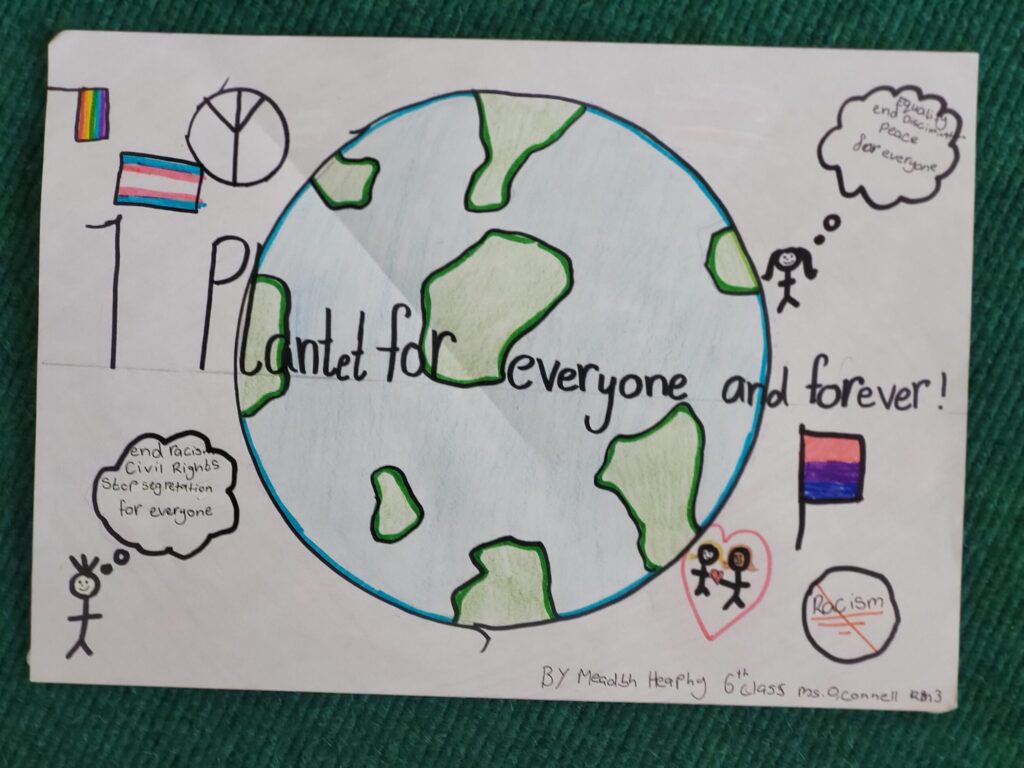 Equality
end
Peace
for everyone
1 Plantet for everyone and forever!
end racism
Civil Rights
Stop segretation
for everyone
Racism
BY Meadbh Heaphy 6th class ms.O'connell RM3